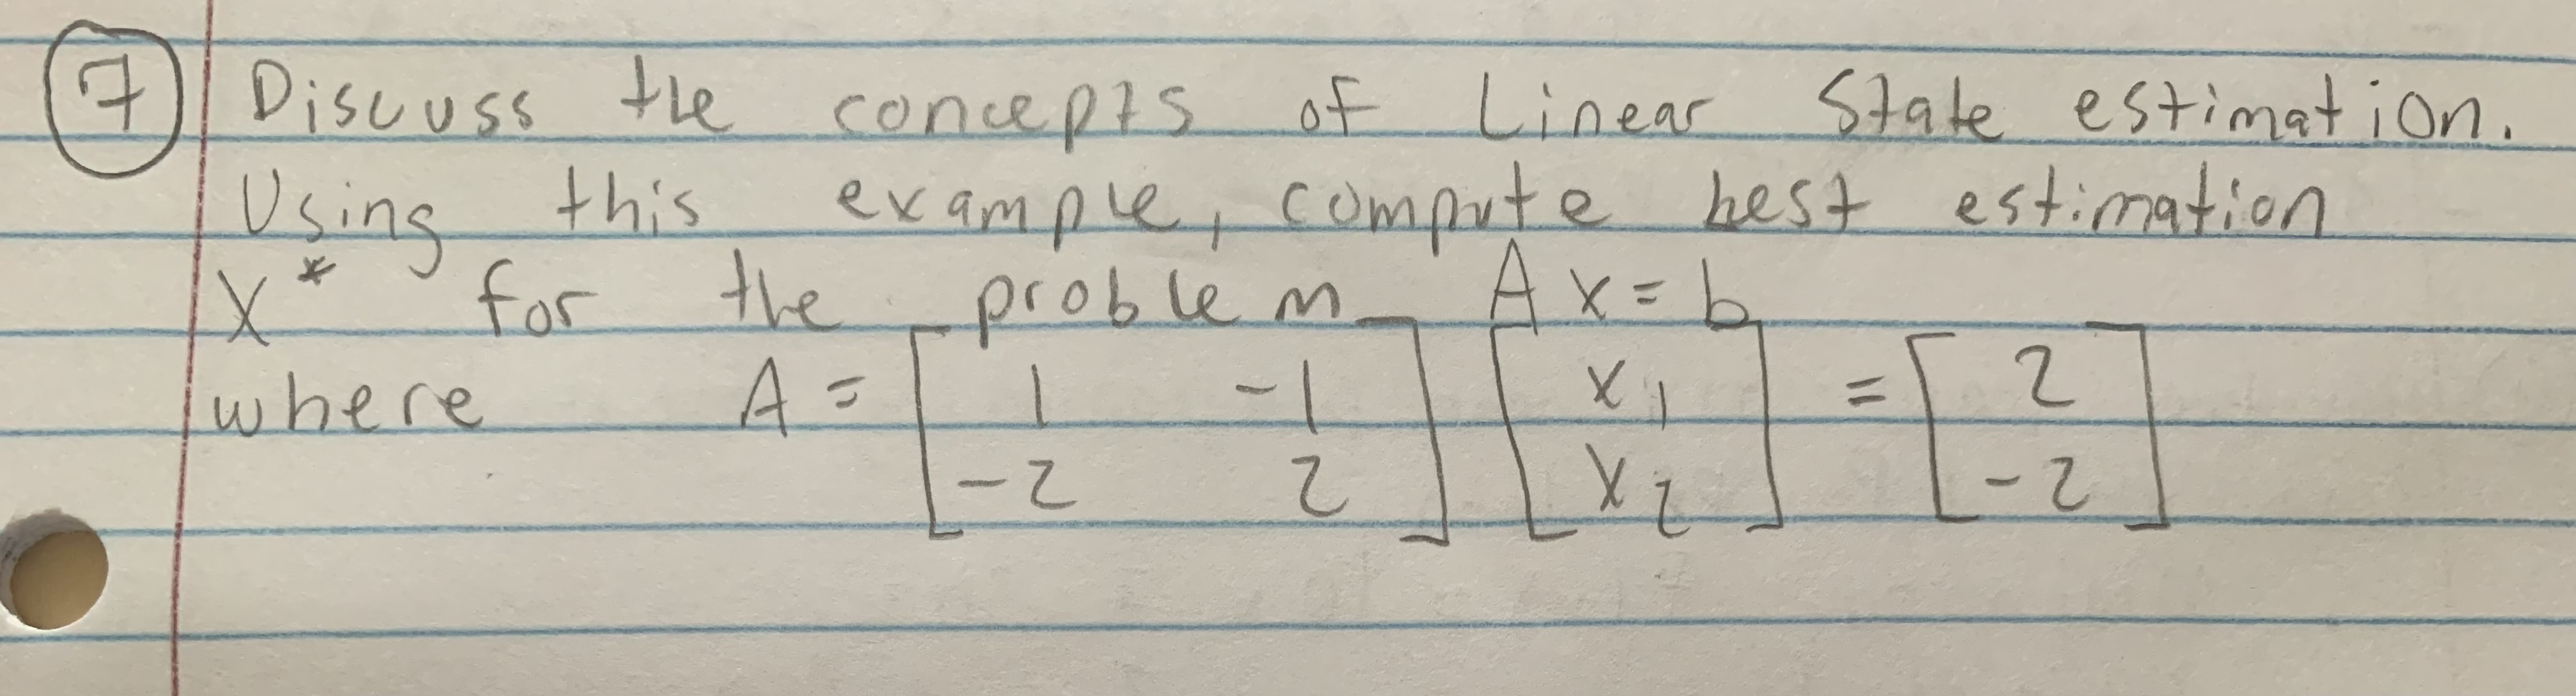 7 Discuss the concepts of Linear State estimation.
Using this example, compute best estimation
X* for the problem Ax=b
where A = [ 1 -1 ] [ x1 ] = [ 2 ]
[ -2 2 ] [ x2 ] [ -2 ]